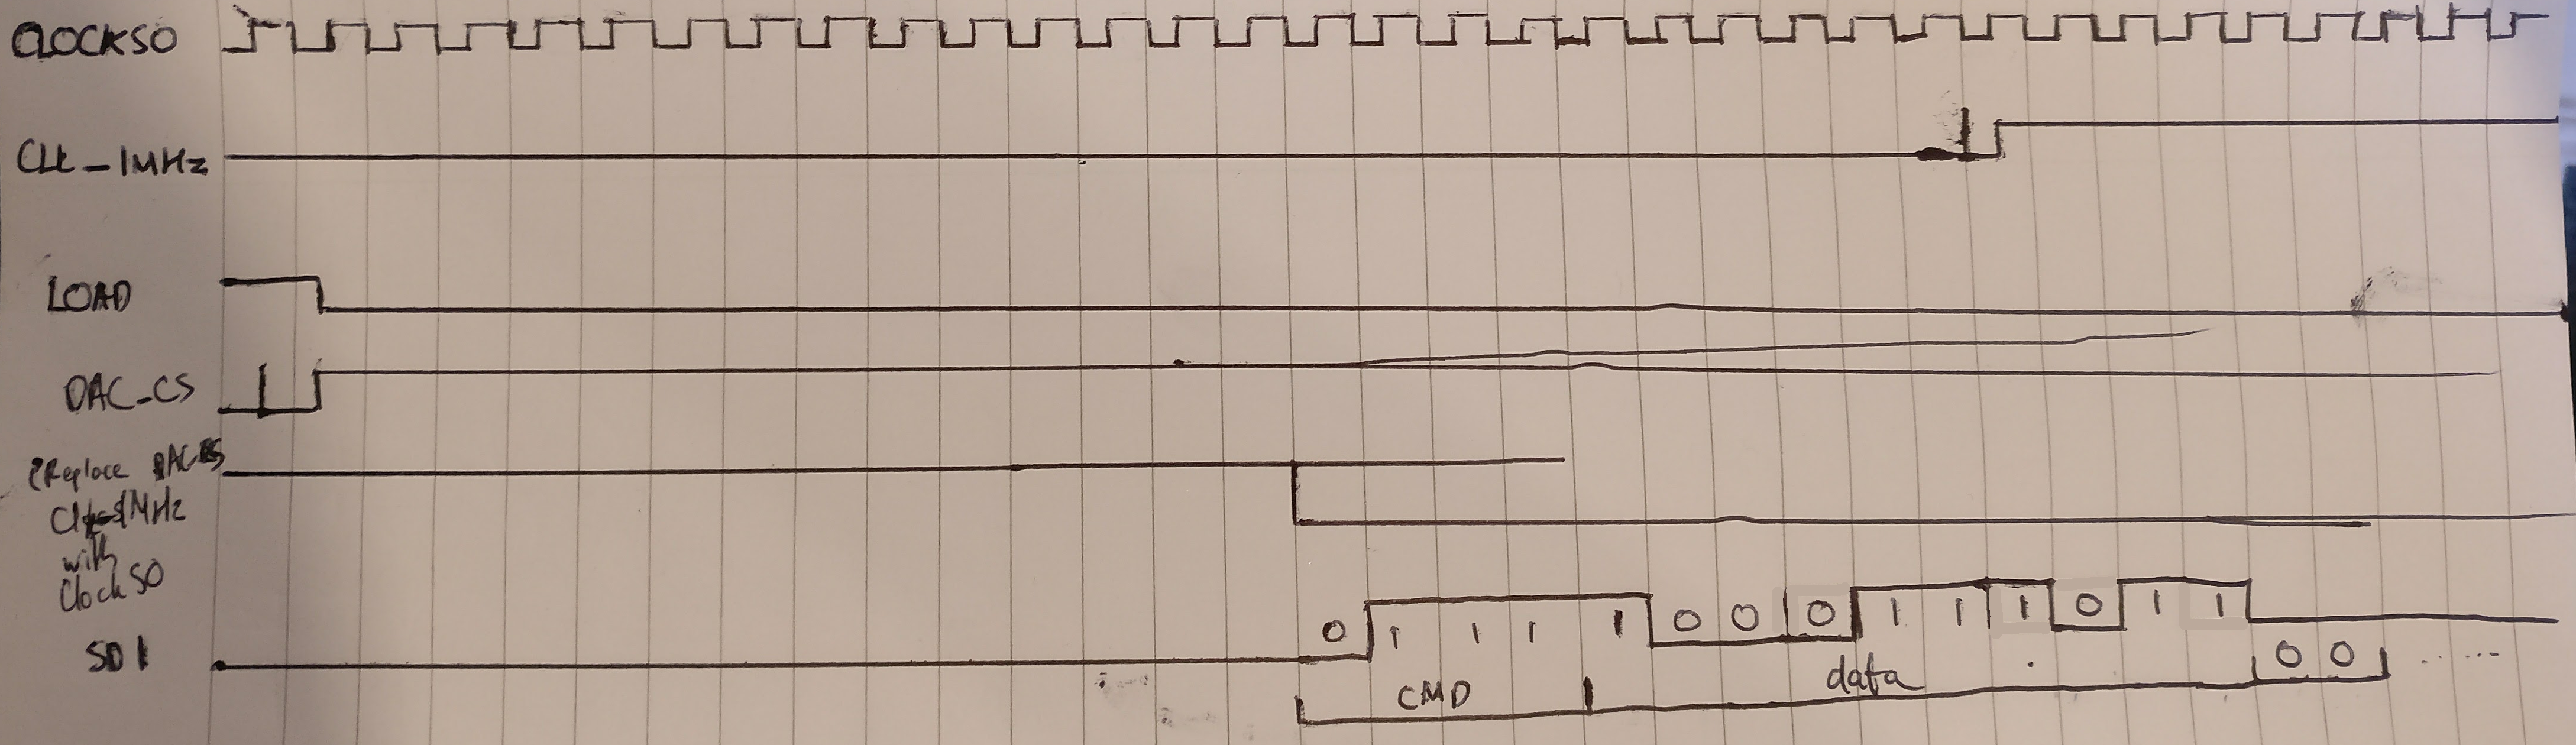 CLOCK50
CLK_1MHz
LOAD
DAC_CS
Replace DAC_CS
MHz
with
Clock50
0 1 1 1 1 0 0 0 1 1 1 0 1 1
SDI
0 0 ......
CMD data